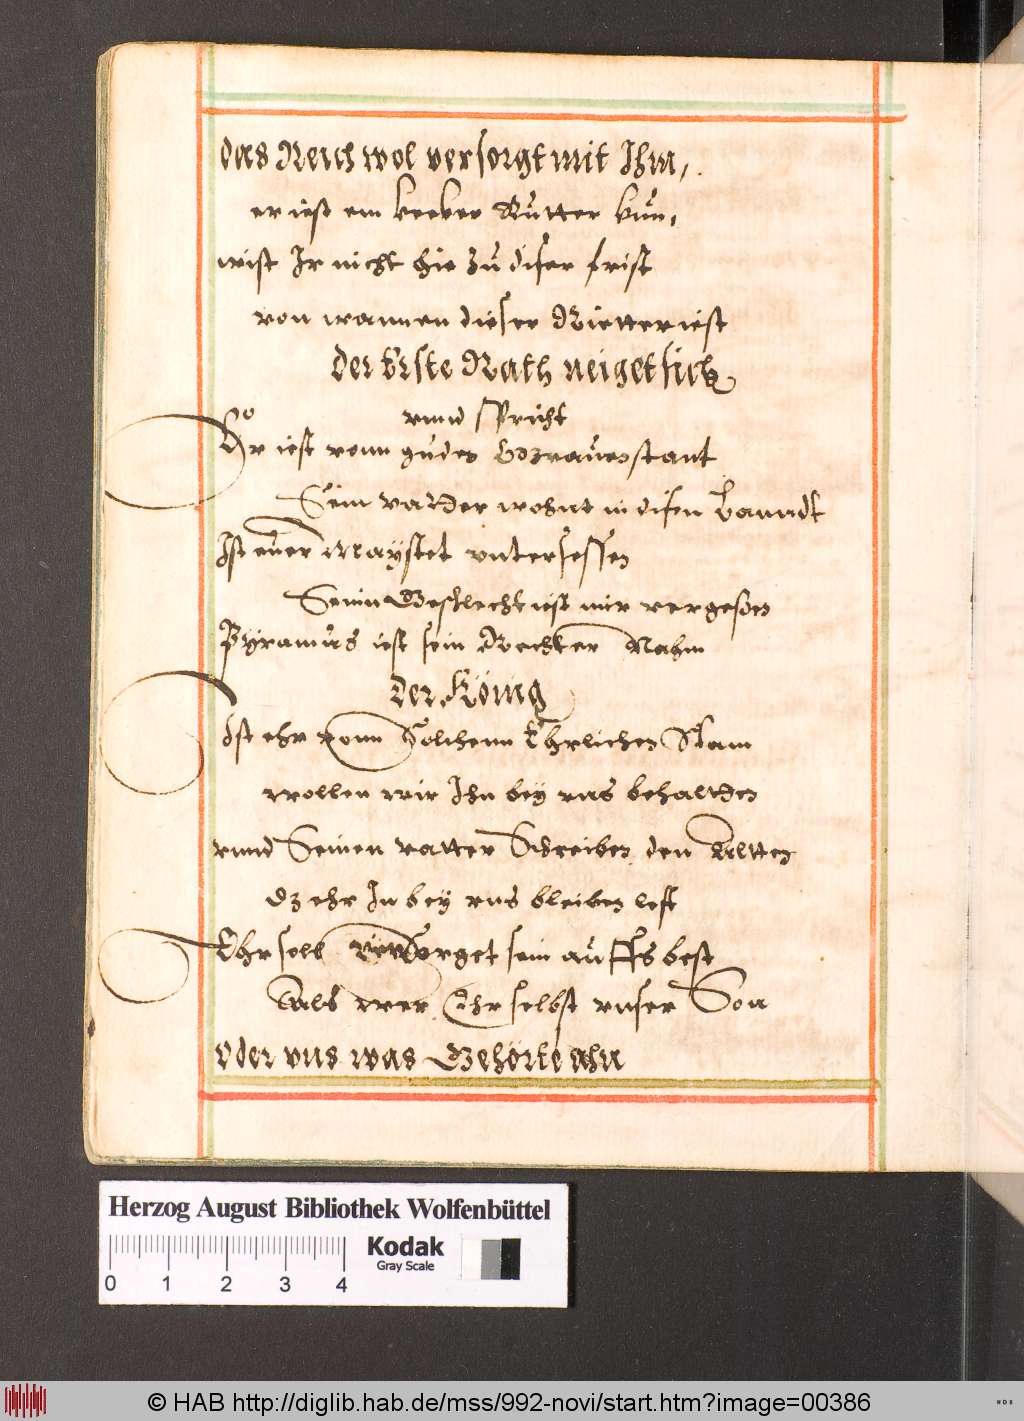 das Reich wol versorgt mit Ihm,
er iest ein kecker Rütter kün,
wist Ir nicht hie zů diser frist
von wannen dieser Rietter iest
Der Erste Rath neiget sich
vnnd spricht
Er iest vonn gůdes stant
Sein vatter wohnt in disen Lanndt
Ist eůer Maystet vntersessen
Seinn Geschlecht ist mir vergessen
Pÿramůs iest sein Rechter Nahm
Der König
Ist ehr vonn solchenn Ehrlichen Stam
wollen wir Ihn beÿ vns behaltten
vnnd Seinen vatter Schreiben den Altten
dz ehr In beÿ vns bleiben lest
Ehr soll versorget sein aůffs best
Als wer Ehr selbst vnser Son
Oder vns was Gehörte ahn
Herzog August Bibliothek Wolfenbüttel
Kodak
Gray Scale
0 1 2 3 4
© HAB http://diglib.hab.de/mss/992-novi/start.htm?image=00386